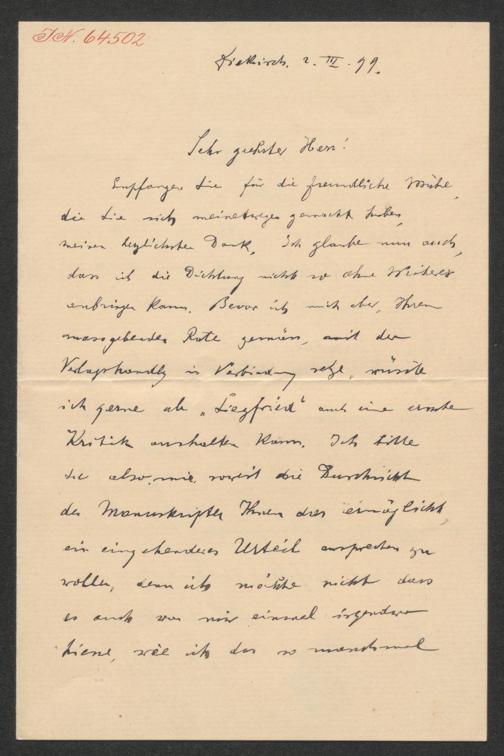 I.N. 64.502
Diekirch. 2. III. 99.
Sehr geehrter Herr!
Empfangen Sie für die freundliche Mühe,
die Sie sich meinetwegen gemacht haben,
meinen herzlichsten Dank. Ich glaube nun auch,
dass ich die Dichtung nicht so ohne Weiteres
anbringen kann. Bevor ich mich aber, Ihrem
massgebenden Rate gemäss, mit der
Verlagshandlg in Verbindung setze, wüsste
ich gerne ob „Siegfried" auch eine ernste
Kritik aushalten kann. Ich bitte
Sie also, mir, soweit die Durchsicht
des Manuskriptes Ihnen das ermöglicht,
ein eingehenderes Urteil aussprechen zu
wollen, denn ich möchte nicht dass
es auch von mir einmal irgendwo
hiesse, wie ich das so manchmal